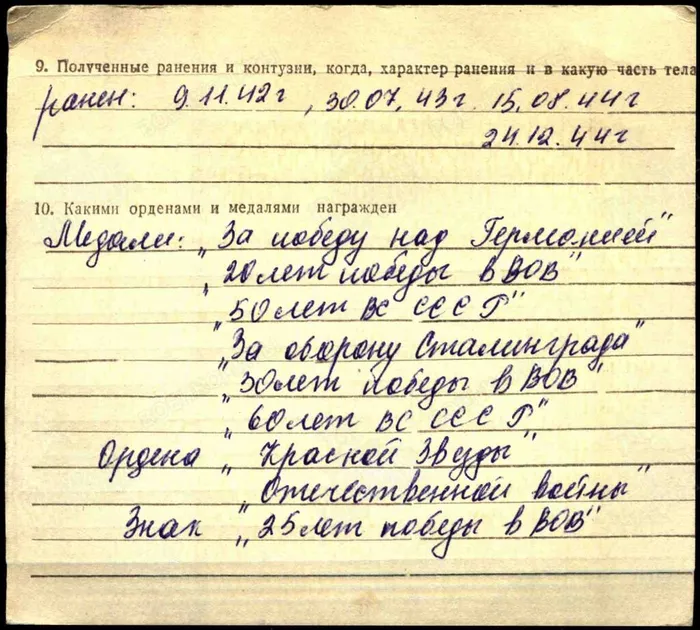 9. Полученные ранения и контузии, когда, характер ранения и в какую часть тела
ранен: 9.11.42г, 30.07.43г. 15.08.44г
24.12.44г
10. Какими орденами и медалями награжден
Медали: „За победу над Германией"
„20 лет победы в ВОВ"
„50 лет ВС СССР"
„За оборону Сталинграда"
„30 лет победы в ВОВ"
„60 лет ВС СССР"
Ордена „Красной Звезды"
„Отечественной войны"
Знак „25 лет победы в ВОВ"